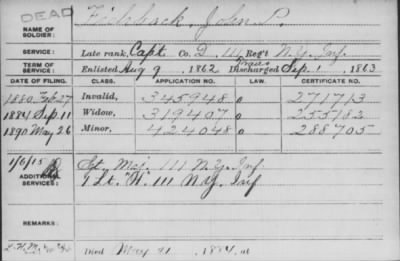 DEAD
NAME OF SOLDIER: John
SERVICE: Late rank, Capt. Co. D, 111 Reg't N.Y. Inf.
TERM OF SERVICE: Enlisted Aug 9, 1862 Discharged Sep. 1, 1863
DATE OF FILING. CLASS. APPLICATION NO. CERTIFICATE NO.
1880 Feb 27 Invalid, 345948 271713
1884 Sep. 11 Widow, 319407 255782
1890 May 26 Minor, 424048 288705
ADDITIONAL SERVICES: Sgt. Maj. 111 N.Y. Inf.
1 Lt. "H" 111 N.Y. Inf
REMARKS:
Died May 21, 1884, at